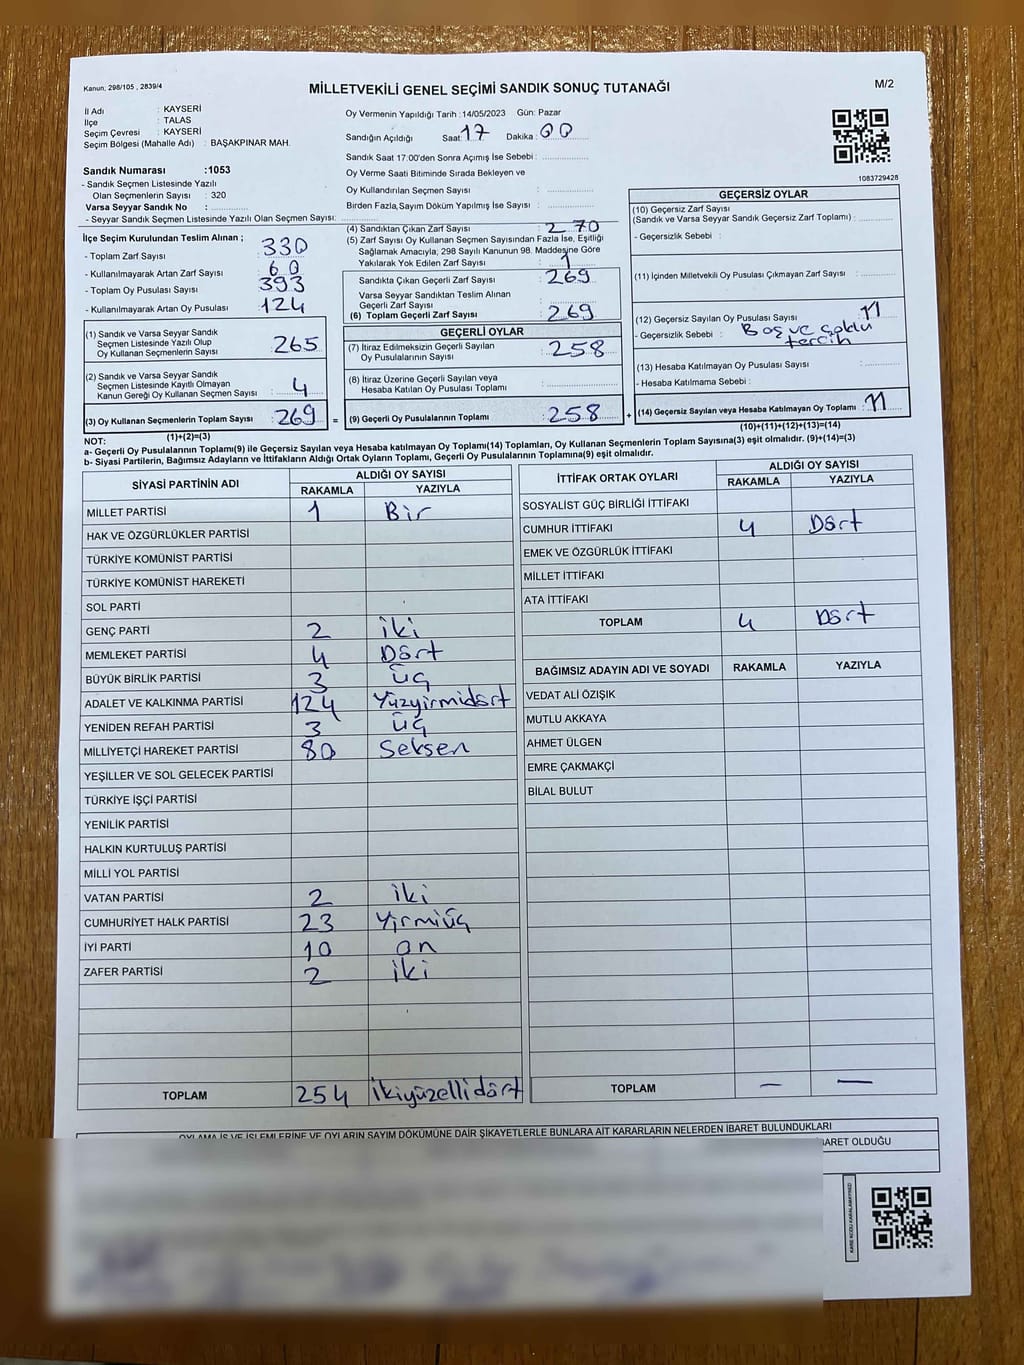 Kanun; 298/105 , 2839/4
MİLLETVEKİLİ GENEL SEÇİMİ SANDIK SONUÇ TUTANAĞI
M/2
İl Adı : KAYSERİ
İlçe : TALAS
Seçim Çevresi : KAYSERİ
Seçim Bölgesi (Mahalle Adı) : BAŞAKPINAR MAH.
Sandık Numarası :1053
- Sandık Seçmen Listesinde Yazılı
Olan Seçmenlerin Sayısı : 320
Varsa Seyyar Sandık No :
- Seyyar Sandık Seçmen Listesinde Yazılı Olan Seçmen Sayısı:
Oy Vermenin Yapıldığı Tarih :14/05/2023 Gün: Pazar
Sandığın Açıldığı Saat: 17 Dakika : 00
Sandık Saat 17:00'den Sonra Açımış İse Sebebi :
Oy Verme Saati Bitiminde Sırada Bekleyen ve
Oy Kullandırılan Seçmen Sayısı :
Birden Fazla Sayım Döküm Yapılmış İse Sayısı :
1083729428
İlçe Seçim Kurulundan Teslim Alınan ;
- Toplam Zarf Sayısı : 330
- Kullanılmayarak Artan Zarf Sayısı : 60
- Toplam Oy Pusulası Sayısı : 393
- Kullanılmayarak Artan Oy Pusulası : 124
(1) Sandık ve Varsa Seyyar Sandık
Seçmen Listesinde Yazılı Olup
Oy Kullanan Seçmenlerin Sayısı : 265
(2) Sandık ve Varsa Seyyar Sandık
Seçmen Listesinde Kayıtlı Olmayan
Kanun Gereği Oy Kullanan Seçmen Sayısı : 4
(3) Oy Kullanan Seçmenlerin Toplam Sayısı : 269 =
(1)+(2)=(3)
(4) Sandıktan Çıkan Zarf Sayısı : 270
(5) Zarf Sayısı Oy Kullanan Seçmen Sayısından Fazla İse, Eşitliği
Sağlamak Amacıyla; 298 Sayılı Kanunun 98. Maddesine Göre
Yakılarak Yok Edilen Zarf Sayısı : 1
Sandıkta Çıkan Geçerli Zarf Sayısı : 269
Varsa Seyyar Sandıktan Teslim Alınan
Geçerli Zarf Sayısı :
(6) Toplam Geçerli Zarf Sayısı : 269
GEÇERLİ OYLAR
(7) İtiraz Edilmeksizin Geçerli Sayılan
Oy Pusulalarının Sayısı : 258
(8) İtiraz Üzerine Geçerli Sayılan veya
Hesaba Katılan Oy Pusulası Toplamı :
(9) Geçerli Oy Pusulalarının Toplamı : 258 +
GEÇERSİZ OYLAR
(10) Geçersiz Zarf Sayısı
(Sandık ve Varsa Seyyar Sandık Geçersiz Zarf Toplamı) :
- Geçersizlik Sebebi :
(11) İçinden Milletvekili Oy Pusulası Çıkmayan Zarf Sayısı :
(12) Geçersiz Sayılan Oy Pusulası Sayısı : 11
- Geçersizlik Sebebi : Boş ve çoklu
tercih
(13) Hesaba Katılmayan Oy Pusulası Sayısı :
- Hesaba Katılmama Sebebi :
(14) Geçersiz Sayılan veya Hesaba Katılmayan Oy Toplamı : 11
(10)+(11)+(12)+(13)=(14)
NOT:
a- Geçerli Oy Pusulalarının Toplamı(9) ile Geçersiz Sayılan veya Hesaba katılmayan Oy Toplamı(14) Toplamları, Oy Kullanan Seçmenlerin Toplam Sayısına(3) eşit olmalıdır. (9)+(14)=(3)
b- Siyasi Partilerin, Bağımsız Adayların ve İttifakların Aldığı Ortak Oyların Toplamı, Geçerli Oy Pusulalarının Toplamına(9) eşit olmalıdır.
SİYASİ PARTİNİN ADI ALDIĞI OY SAYISI
RAKAMLA YAZIYLA
MİLLET PARTİSİ 1 Bir
HAK VE ÖZGÜRLÜKLER PARTİSİ
TÜRKİYE KOMÜNİST PARTİSİ
TÜRKİYE KOMÜNİST HAREKETİ
SOL PARTİ
GENÇ PARTİ 2 iki
MEMLEKET PARTİSİ 4 Dört
BÜYÜK BİRLİK PARTİSİ 3 üç
ADALET VE KALKINMA PARTİSİ 124 Yüzyirmidört
YENİDEN REFAH PARTİSİ 3 üç
MİLLİYETÇİ HAREKET PARTİSİ 80 Seksen
YEŞİLLER VE SOL GELECEK PARTİSİ
TÜRKİYE İŞÇİ PARTİSİ
YENİLİK PARTİSİ
HALKIN KURTULUŞ PARTİSİ
MİLLİ YOL PARTİSİ
VATAN PARTİSİ 2 iki
CUMHURİYET HALK PARTİSİ 23 Yirmiüç
İYİ PARTİ 10 on
ZAFER PARTİSİ 2 iki
TOPLAM 254 ikiyüzellidört
İTTİFAK ORTAK OYLARI ALDIĞI OY SAYISI
RAKAMLA YAZIYLA
SOSYALİST GÜÇ BİRLİĞİ İTTİFAKI
CUMHUR İTTİFAKI 4 Dört
EMEK VE ÖZGÜRLÜK İTTİFAKI
MİLLET İTTİFAKI
ATA İTTİFAKI
TOPLAM 4 Dört
BAĞIMSIZ ADAYIN ADI VE SOYADI RAKAMLA YAZIYLA
VEDAT ALİ ÖZIŞIK
MUTLU AKKAYA
AHMET ÜLGEN
EMRE ÇAKMAKÇİ
BİLAL BULUT
TOPLAM — —
OYLAMA İŞ VE İŞLEMLERİNE VE OYLARIN SAYIM DÖKÜMÜNE DAİR ŞİKAYETLERLE BUNLARA AİT KARARLARIN NELERDEN İBARET BULUNDUKLARI
BARET OLDUĞU
KARE KODU KARALAMAYINIZ!